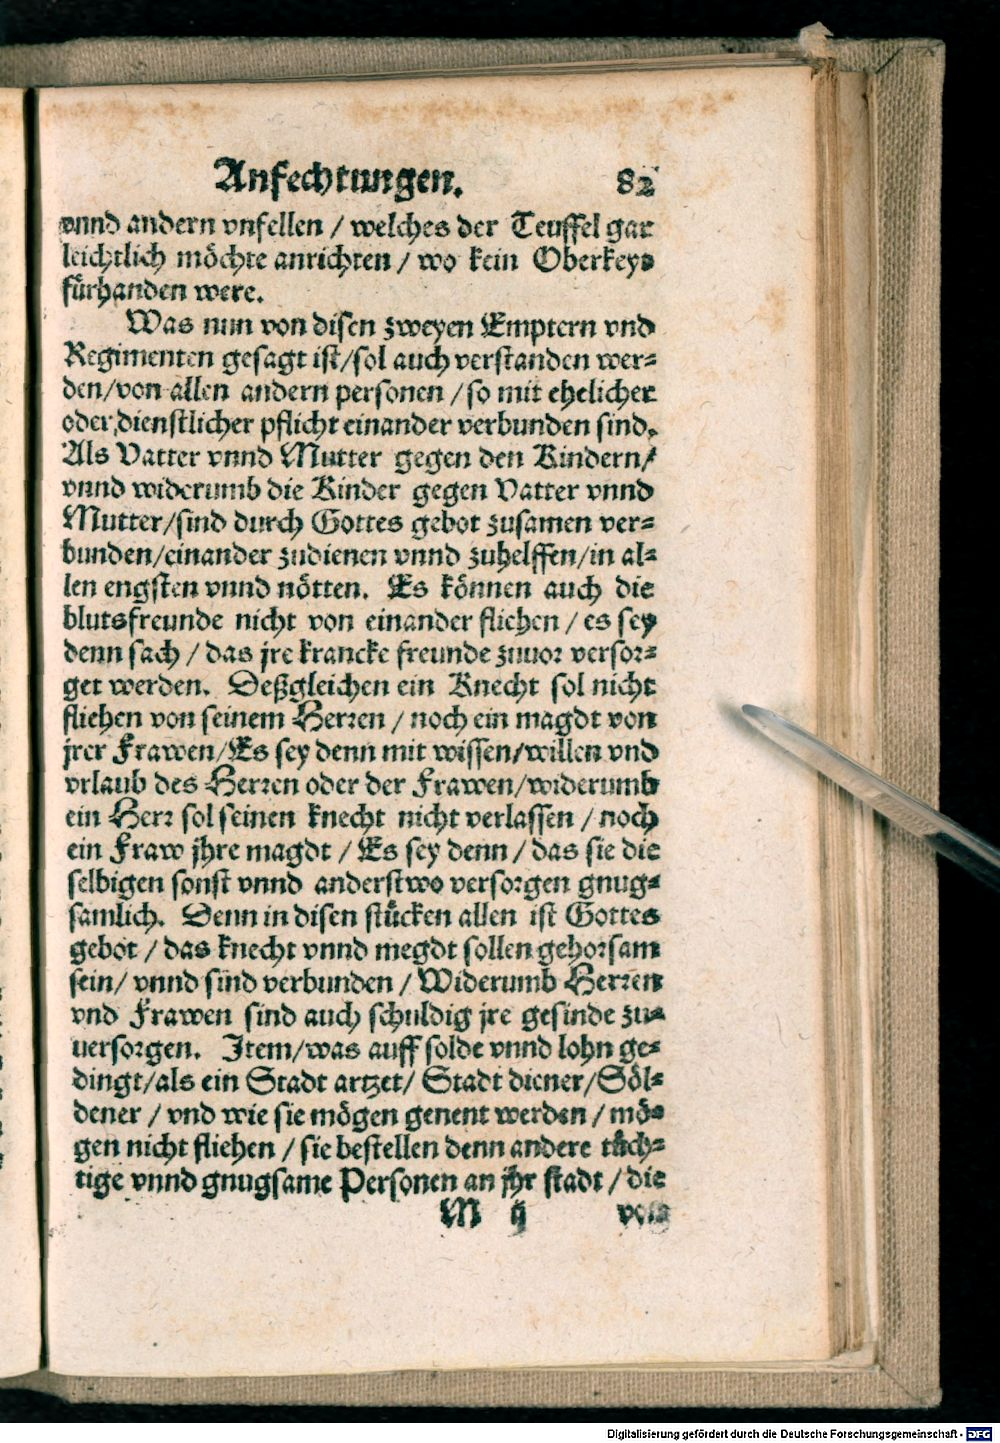 Anfechtungen. 82
vnnd andern vnfellen / welches der Teuffel gar
leichtlich möchte anrichten / wo kein Oberkeyt
fürhanden were.
Was nun von disen zweyen Emptern vnd
Regimenten gesagt ist/sol auch verstanden wer-
den/von allen andern personen / so mit ehelicher
oder dienstlicher pflicht einander verbunden sind.
Als Vatter vnnd Mutter gegen den Kindern/
vnnd widerumb die Kinder gegen Vatter vnnd
Mutter/sind durch Gottes gebot zusamen ver-
bunden/einander zudienen vnnd zuhelffen/in al-
len engsten vnnd nötten. Es können auch die
blutsfreunde nicht von einander fliehen / es sey
denn sach / das jre krancke freunde zuuor versor-
get werden. Deßgleichen ein Knecht sol nicht
fliehen von seinem Herren / noch ein magdt von
jrer Frawen/Es sey denn mit wissen/willen vnd
vrlaub des Herren oder der Frawen/widerumb
ein Herr sol seinen knecht nicht verlassen / noch
ein Fraw jhre magdt / Es sey denn / das sie die
selbigen sonst vnnd anderstwo versorgen gnug-
samlich. Denn in disen stücken allen ist Gottes
gebot / das knecht vnnd megdt sollen gehorsam
sein/ vnnd sind verbunden / Widerumb Herren
vnd Frawen sind auch schuldig jre gesinde zu-
uersorgen. Item/was auff solde vnnd lohn ge-
dingt/als ein Stadt artzet/ Stadt diener/Söl-
dener / vnd wie sie mögen genent werden / mö-
gen nicht fliehen / sie bestellen denn andere tüch-
tige vnnd gnugsame Personen an jhr stadt / die
M ij
Digitalisierung gefördert durch die Deutsche Forschungsgemeinschaft - DFG